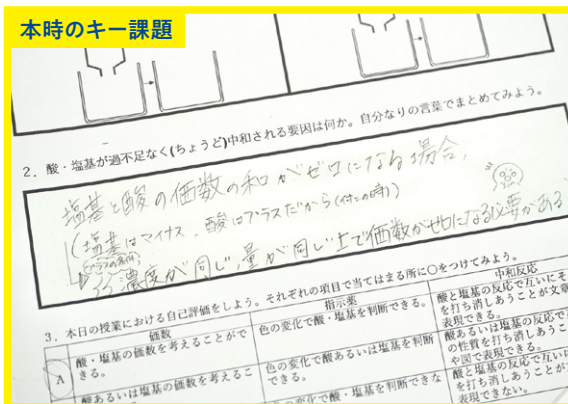 本時のキー課題
2．酸・塩基が過不足なく(ちょうど)中和される要因は何か。自分なりの言葉でまとめてみよう。
塩基と酸の価数の和がゼロになる場合，
(塩基はマイナス，酸はプラスだから
濃度が同じ，量が同じ上で価数がゼロになる必要がある
3．本日の授業における自己評価をしよう。それぞれの項目で当てはまる所に○をつけてみよう。
価数 指示薬 中和反応
A 酸・塩基の価数を考えることができる。 色の変化で酸・塩基を判断できる。 酸と塩基の反応で互いにそ
を打ち消しあうことが文章
表現できる。
酸あるいは塩基の価数を考えるこ 色の変化で酸あるいは塩基を判断できる。 酸あるいは塩基の反応で互
の性質を打ち消しあうこ
や図で表現できる。
変化で酸・塩基を判断できな 酸と塩基の反応で互いに
を打ち消しあうことが
表現できない。